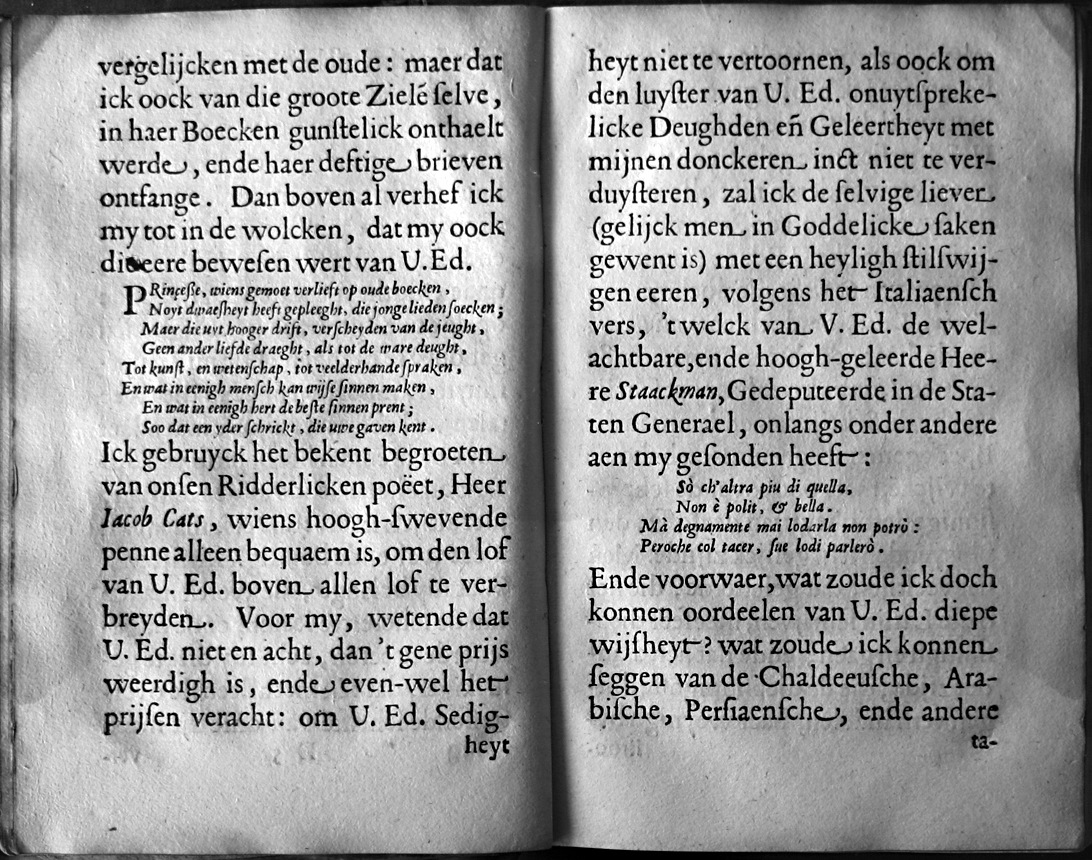 vergelijcken met de oude : maer dat
ick oock van die groote Zielẽ ſelve,
in haer Boecken gunſtelick onthaelt
werde, ende haer deftige brieven
ontfange. Dan boven al verhef ick
my tot in de wolcken, dat my oock
die eere beweſen wert van U.Ed.
PRinceſſe, wiens gemoet verlieft op oude boecken,
Noyt dwaeſheyt heeft gepleeght, die jonge lieden ſoecken;
Maer die uyt hooger drift, verſcheyden van de jeught,
Geen ander liefde draeght, als tot de ware deught,
Tot kunſt, en wetenſchap, tot veelderhande ſpraken,
En wat in eenigh menſch kan wijſe ſinnen maken,
En wat in eenigh hert de beſte ſinnen prent;
Soo dat een yder ſchrickt, die uwe gaven kent.
Ick gebruyck het bekent begroeten
van onſen Ridderlicken poëet, Heer
Iacob Cats, wiens hoogh-ſwevende
penne alleen bequaem is, om den lof
van U. Ed. boven allen lof te ver-
breyden. Voor my, wetende dat
U. Ed. niet en acht, dan 't gene prijs
weerdigh is, ende even-wel het
prijſen veracht: om U. Ed. Sedig-
heyt
heyt niet te vertoornen, als oock om
den luyſter van U. Ed. onuytſpreke-
licke Deughden en̄ Geleertheyt met
mijnen donckeren inct niet te ver-
duyſteren, zal ick de ſelvige liever
(gelijck men in Goddelicke ſaken
gewent is) met een heyligh ſtilſwij-
gen eeren, volgens het Italiaenſch
vers, 't welck van V. Ed. de wel-
achtbare, ende hoogh-geleerde Hee-
re Staackman, Gedeputeerde in de Sta-
ten Generael, onlangs onder andere
aen my geſonden heeft :
Sò ch'altra piu di quella,
Non è polit, & bella.
Mà degnamente mai lodarla non potrò :
Peroche col tacer, ſue lodi parlerò.
Ende voorwaer, wat zoude ick doch
konnen oordeelen van U. Ed. diepe
wijſheyt? wat zoude ick konnen
ſeggen van de Chaldeeuſche, Ara-
biſche, Perſiaenſche, ende andere
ta-